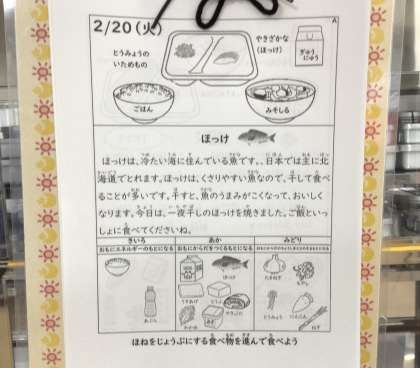 2/20(火)
A
とうみょうの
いためもの
やきざかな
(ほっけ)
ぎゅう
にゅう
ごはん
みそしる
ほっけ
ほっけは、冷たい海に住んでいる魚です。日本では主に北
海道でとれます。ほっけは、くさりやすい魚なので、干して食べ
ることが多いです。干すと、魚のうまみがこくなって、おいしく
なります。今日は、一夜干しのほっけを焼きました。ご飯といっ
しょに食べてくださいね。
きいろ
あか
みどり
おもにエネルギーのもとになる
おもにからだをつくるもとになる
ほっけ
わかめ
みそ
あぶら
たまねぎ
もやし
とうみょう
にんじん
ねぎ
ほねをじょうぶにする食べ物を進んで食べよう